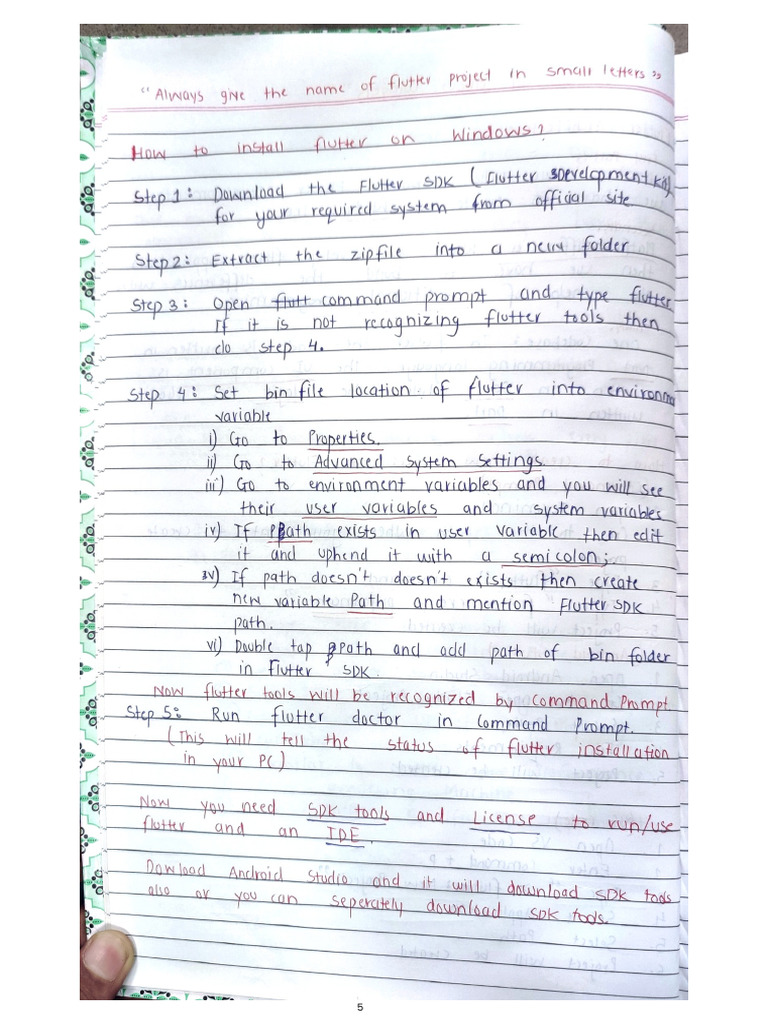 "Always give the name of flutter project in small letters"
How to install flutter on Windows?
Step 1: Download the Flutter SDK (Flutter Development Kit)
for your required system from official site
Step 2: Extract the zipfile into a new folder
Step 3: Open command prompt and type flutter
If it is not recognizing flutter tools then
do step 4.
Step 4: Set bin file location of flutter into environme
variable
i) Go to Properties.
ii) Go to Advanced System Settings.
iii) Go to environment variables and you will see
their user variables and system variables
iv) If Path exists in user variable then edit
it and uphend it with a semicolon;
v) If path doesn't doesn't exists then create
new variable Path and mention Flutter SDK
path.
vi) Double tap Path and add path of bin folder
in Flutter SDK.
Now flutter tools will be recognized by Command Prompt
Step 5: Run flutter doctor in Command Prompt.
(This will tell the status of flutter installation
in your PC)
Now you need SDK tools and License to run/use
flutter and an IDE.
Dowload Android Studio and it will download SDK tools
also or you can seperately download SDK tools.
5